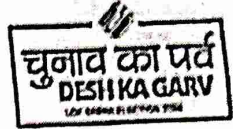 चुनाव का पर्व
DESH KA GARV